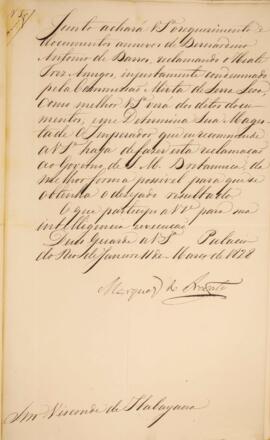 Junto achará V Sª o requerimento e
documentos annexos de Bernardino
Antonio de Barros, reclamando o Hiate
Tres Amigos, injustamente condemnado
pela Commissão Mixta de Serra Leoa.
Como melhor V Sª verá dos ditos docu-
mentos, e que Determina Sua Magesta-
de O Imperador que eu recommende
a V Sª haja de fazer esta reclamação
ao Governo de S. M. Britanica da
melhor forma possivel para que se
obtenha o desejado resultado.
O que participo a V Sª para sua
intelligencia e execução.
Deus Guarde a V Sª Palacio
do Rio de Janeiro 11 de Março de 1828
Marquez de
Snr Visconde de Itabayana